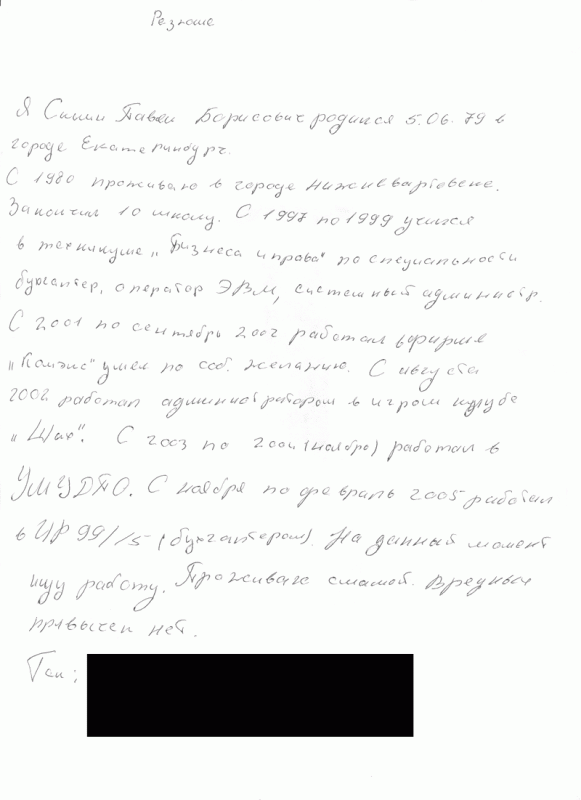 Резюме
Я Павел Борисович родился 5.06.79 в
городе Екатеринбург.
С 1980 проживаю в городе Нижневартовске.
Закончил 10 школу. С 1997 по 1999 учился
в техникуме „Бизнеса и права" по специальности
бухгалтер, оператор ЭВМ, системный администр.
С 2001 по сентябрь 2002 работал в фирме
ушел по соб. желанию. С августа
2002 работал администратором в игром клубе
С 2003 по (ноябрь) работал в
УМУДТО. С ноября по февраль 2005 работал
в (бухгалтером). На данный момент
ищу работу. Проживаю с мамой. Вредных
привычек нет.
Тел: